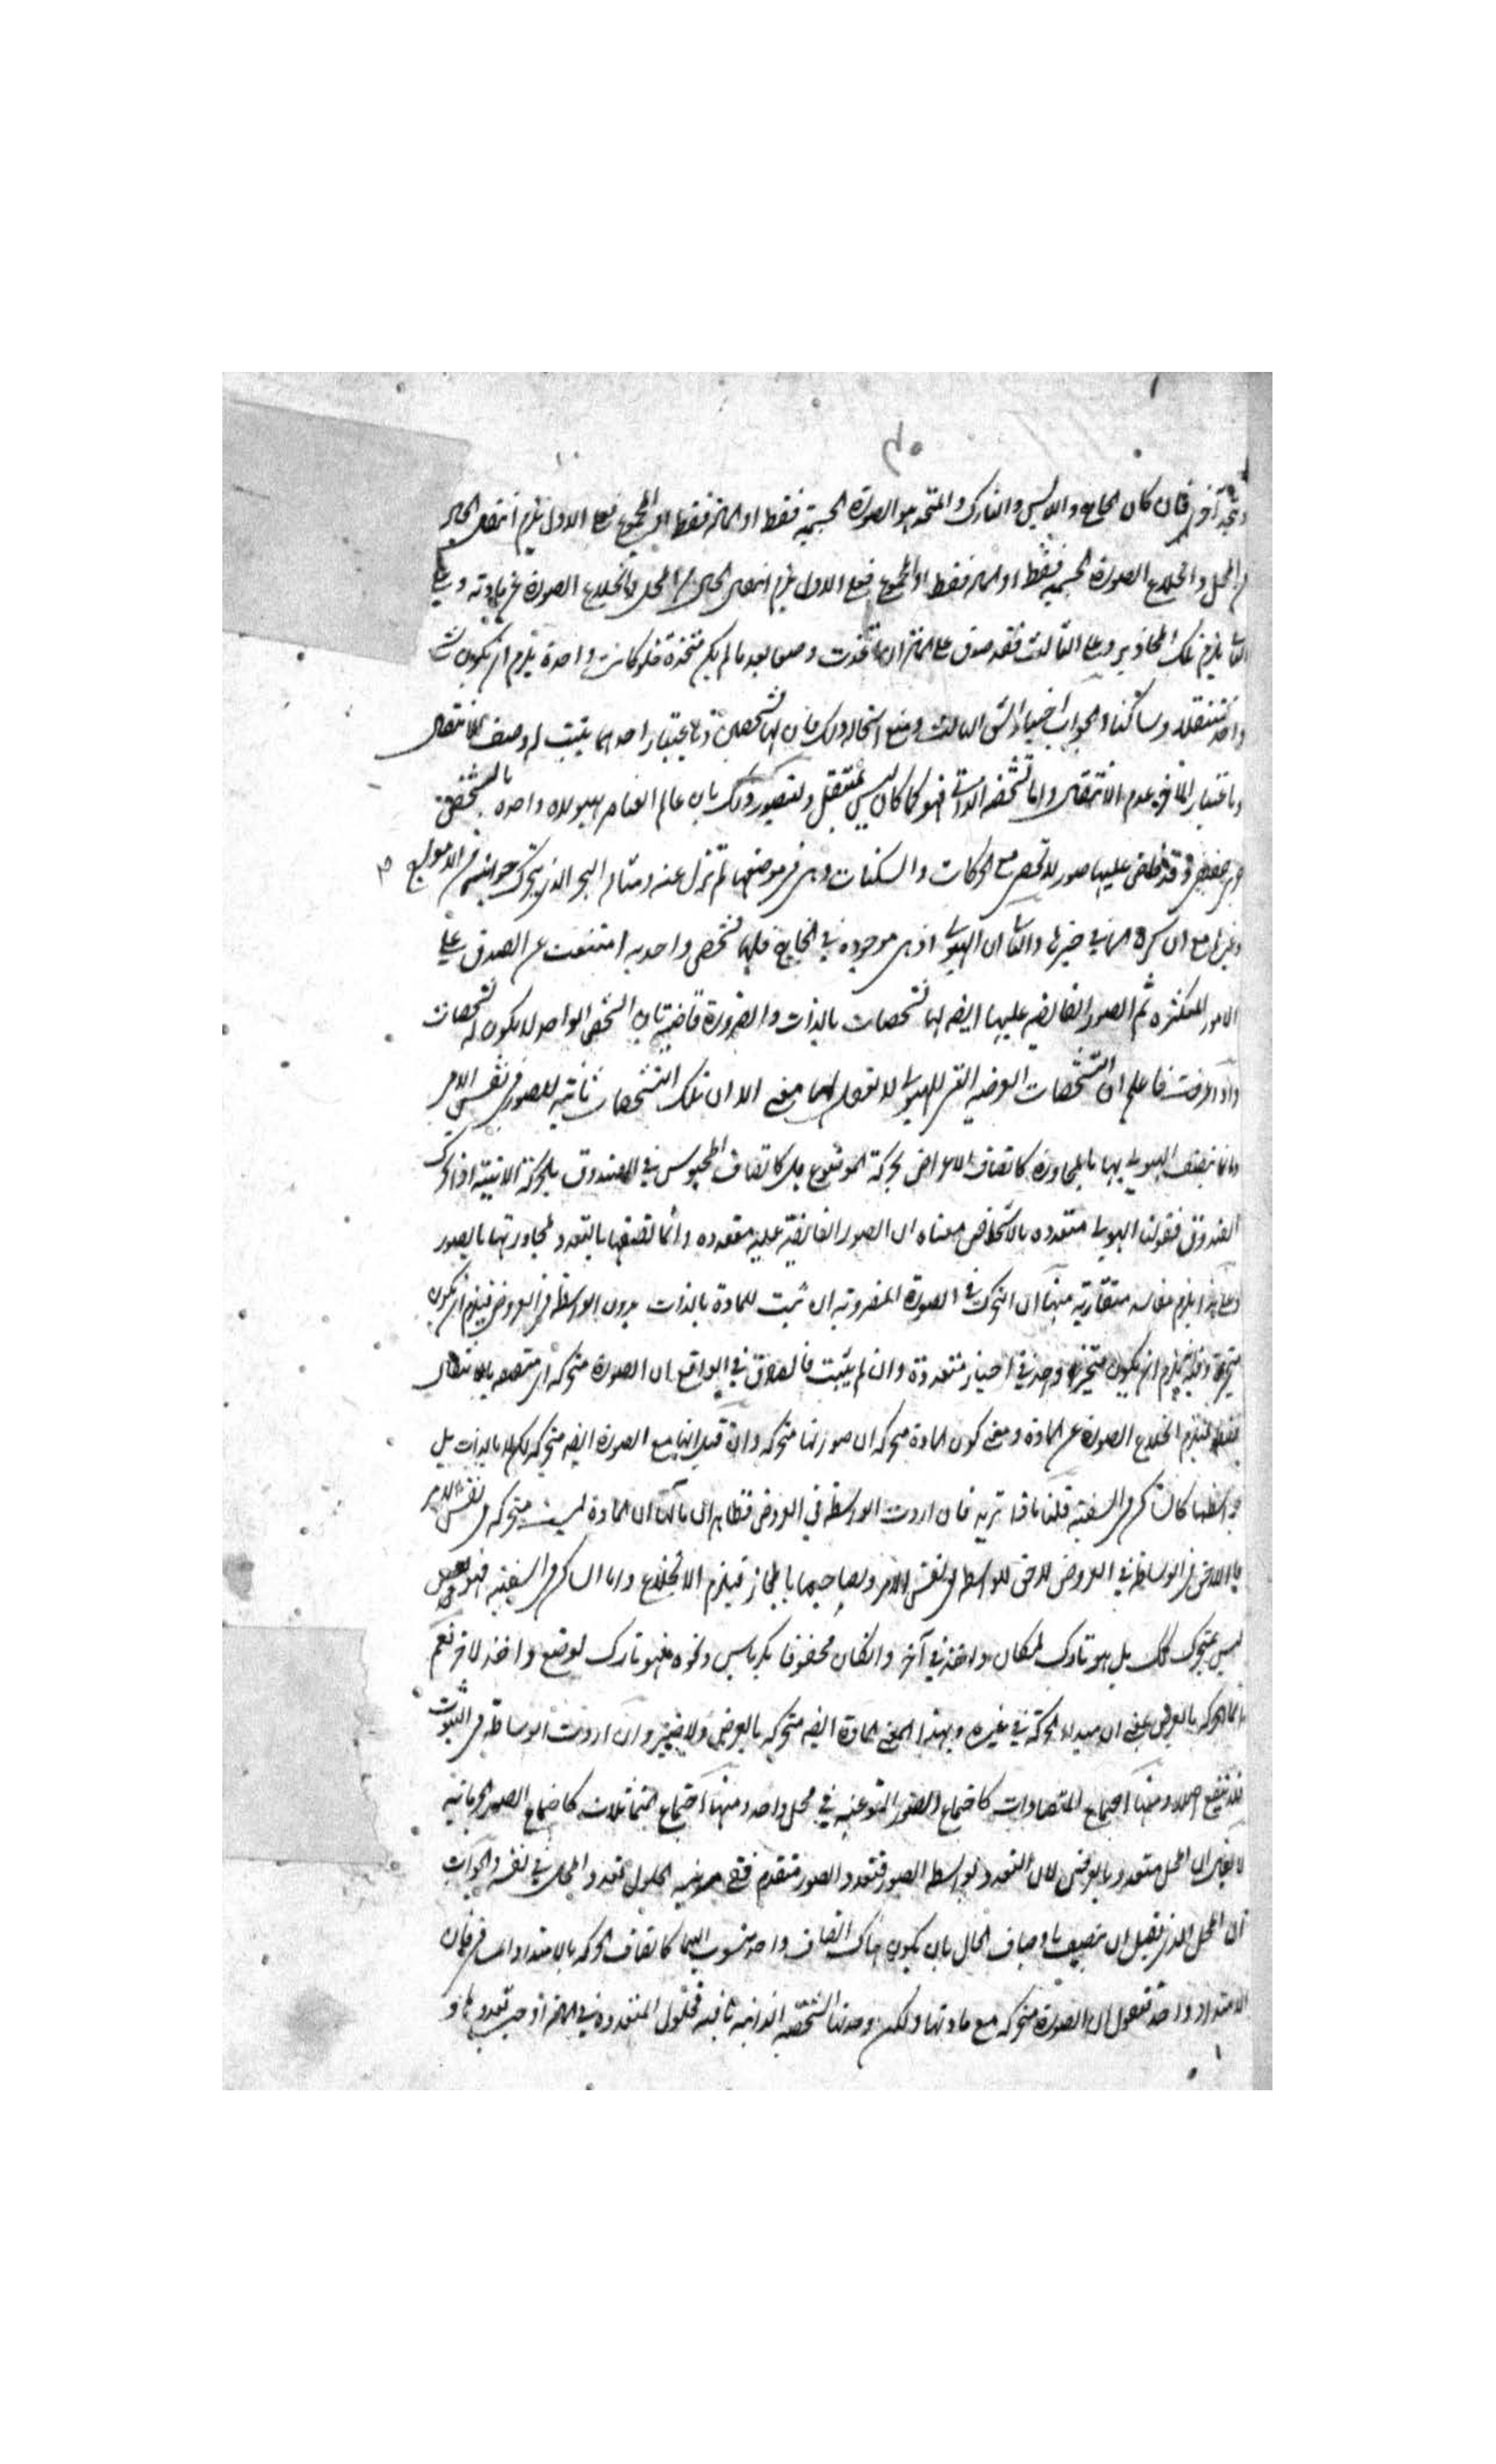 فان كان الخالع واللابس والتارك والمتخذ هو الصورة الجسمية فقط او المادة فقط او المجموع فعلى الاول يلزم انتقال الحال
المحل وانخلاع الصورة الجسمية فقط او المادة فقط او المجموع فعلى الاول يلزم انتقال الحال من المحل وانخلاع الصورة عن مادته وعلى
الثاني يلزم تلك المحاذير وعلى الثالث فقد صدق على المادة انها اتخذت وضعا بعد ما لم يكن متخذة فلو كانت واحدة يلزم ان يكون شئ
واحد منتقلا وساكنا والجواب اختيار الشق الثالث ومنع استحالة ذلك فان لها تشخصين وباعتبار احدهما يثبت له وصف الانتقال
وباعتبار الآخر عدم الانتقال واما تشخصه الذاتي فهو كما كان ليس بمنتقل ولتصوير ذلك بان عالم العناصر هيولاه واحدة بالشخص
وقد فاض عليها صور لا تحصى مع الحركات والسكنات وهى فى موضعها لم تزل عنه ومثاله البحر الذى يتحرك جوانبه فى الامواج
وغيرها مع ان كرة الماء في حيزها والثاني ان الهيولى اذ هى موجودة في الخارج فلها تشخص واحد به امتنعت عن الصدق على
الامور المتكثرة ثم الصور الفائضة عليها ايضا لها تشخصات بالذات والضرورة قاضية بان الشخص الواحد لا يكون له تشخصات
واذا عرفت فاعلم ان التشخصات العرضية التى للهيولى لا نعقل لها معنى الا ان تلك التشخصات ثابتة للصور فى نفس الامر
وانما يتصف الهيولى بها بالمجاورة كاتصاف الاعراض بحركة الموضوع بل كاتصاف المحبوس في الصندوق بالحركة الاينية اذا تحرك
الصندوق فقولنا الهيولى متعددة بالاشخاص معناه ان الصور الفائضة عليه متعددة وانما تتصفها بالتعدد لمجاورتها بالصور
وعلى هذا يلزم مفاسد متقاربة منها ان التحرك في الصورة المفروضة ان ثبت للمادة بالذات بدون الواسطة فى العروض فيلزم ان يكون
يلزم ان يكون متحيزا واحد في احياز متعددة وان لم يثبت فالصادق في الواقع ان الصورة متحركة اى متصفة بالانتقال
فقط فيلزم انخلاع الصورة عن المادة ومعنى كون المادة متحركة ان صورتها متحركة وان قيل انها مع الصورة ايضا متحركة لكن لا بالذات بل
بواسطتها كالساكن فى السفينة قلنا ماذا تريد فان اردت الواسطة في العروض فظاهر ان مآله ان المادة ليست متحركة فى نفس الامر
للواسطة فى نفس الامر ولصاحبها بالمجاز فيلزم الانخلاع واما الساكن فى السفينة فهو
ليس بمتحرك كذلك بل هو تارك لمكان واخذ في آخر وان كان محفوفا بكرباس ونحوه فهو تارك لوضع واخذ لاخر نعم
الحركة بالعرض بمعنى ان مبداء الحركة في غيره وبهذا المعنى المادة ايضا متحركة بالعرض ولا ضير وان اردت الوساطة فى الثبوت
فلا ينفع اصلا ومنها اجتماع المتضادات كاجتماع الصور النوعية في محل واحد ومنها اجتماع المتماثلات كاجتماع الصور الجرمانية
لا يقال ان المحل متعدد بالعرض لان التعدد بواسطة الصور فتعدد الصور متقدم الحلول تعدد المحال في نفسه والجواب
ان المحل الذى يقبل ان يتصف باوصاف الحال بان يكون هناك اتصاف واحد منسوب اليهما كاتصاف الحركة بالامتداد المسافى فان
الامتداد واحد فنقول ان الصورة متحركة مع مادتها ولكن وحدتها الشخصية الذاتية ثابتة فحلول المتعددة في المادة اوجب تعددها و